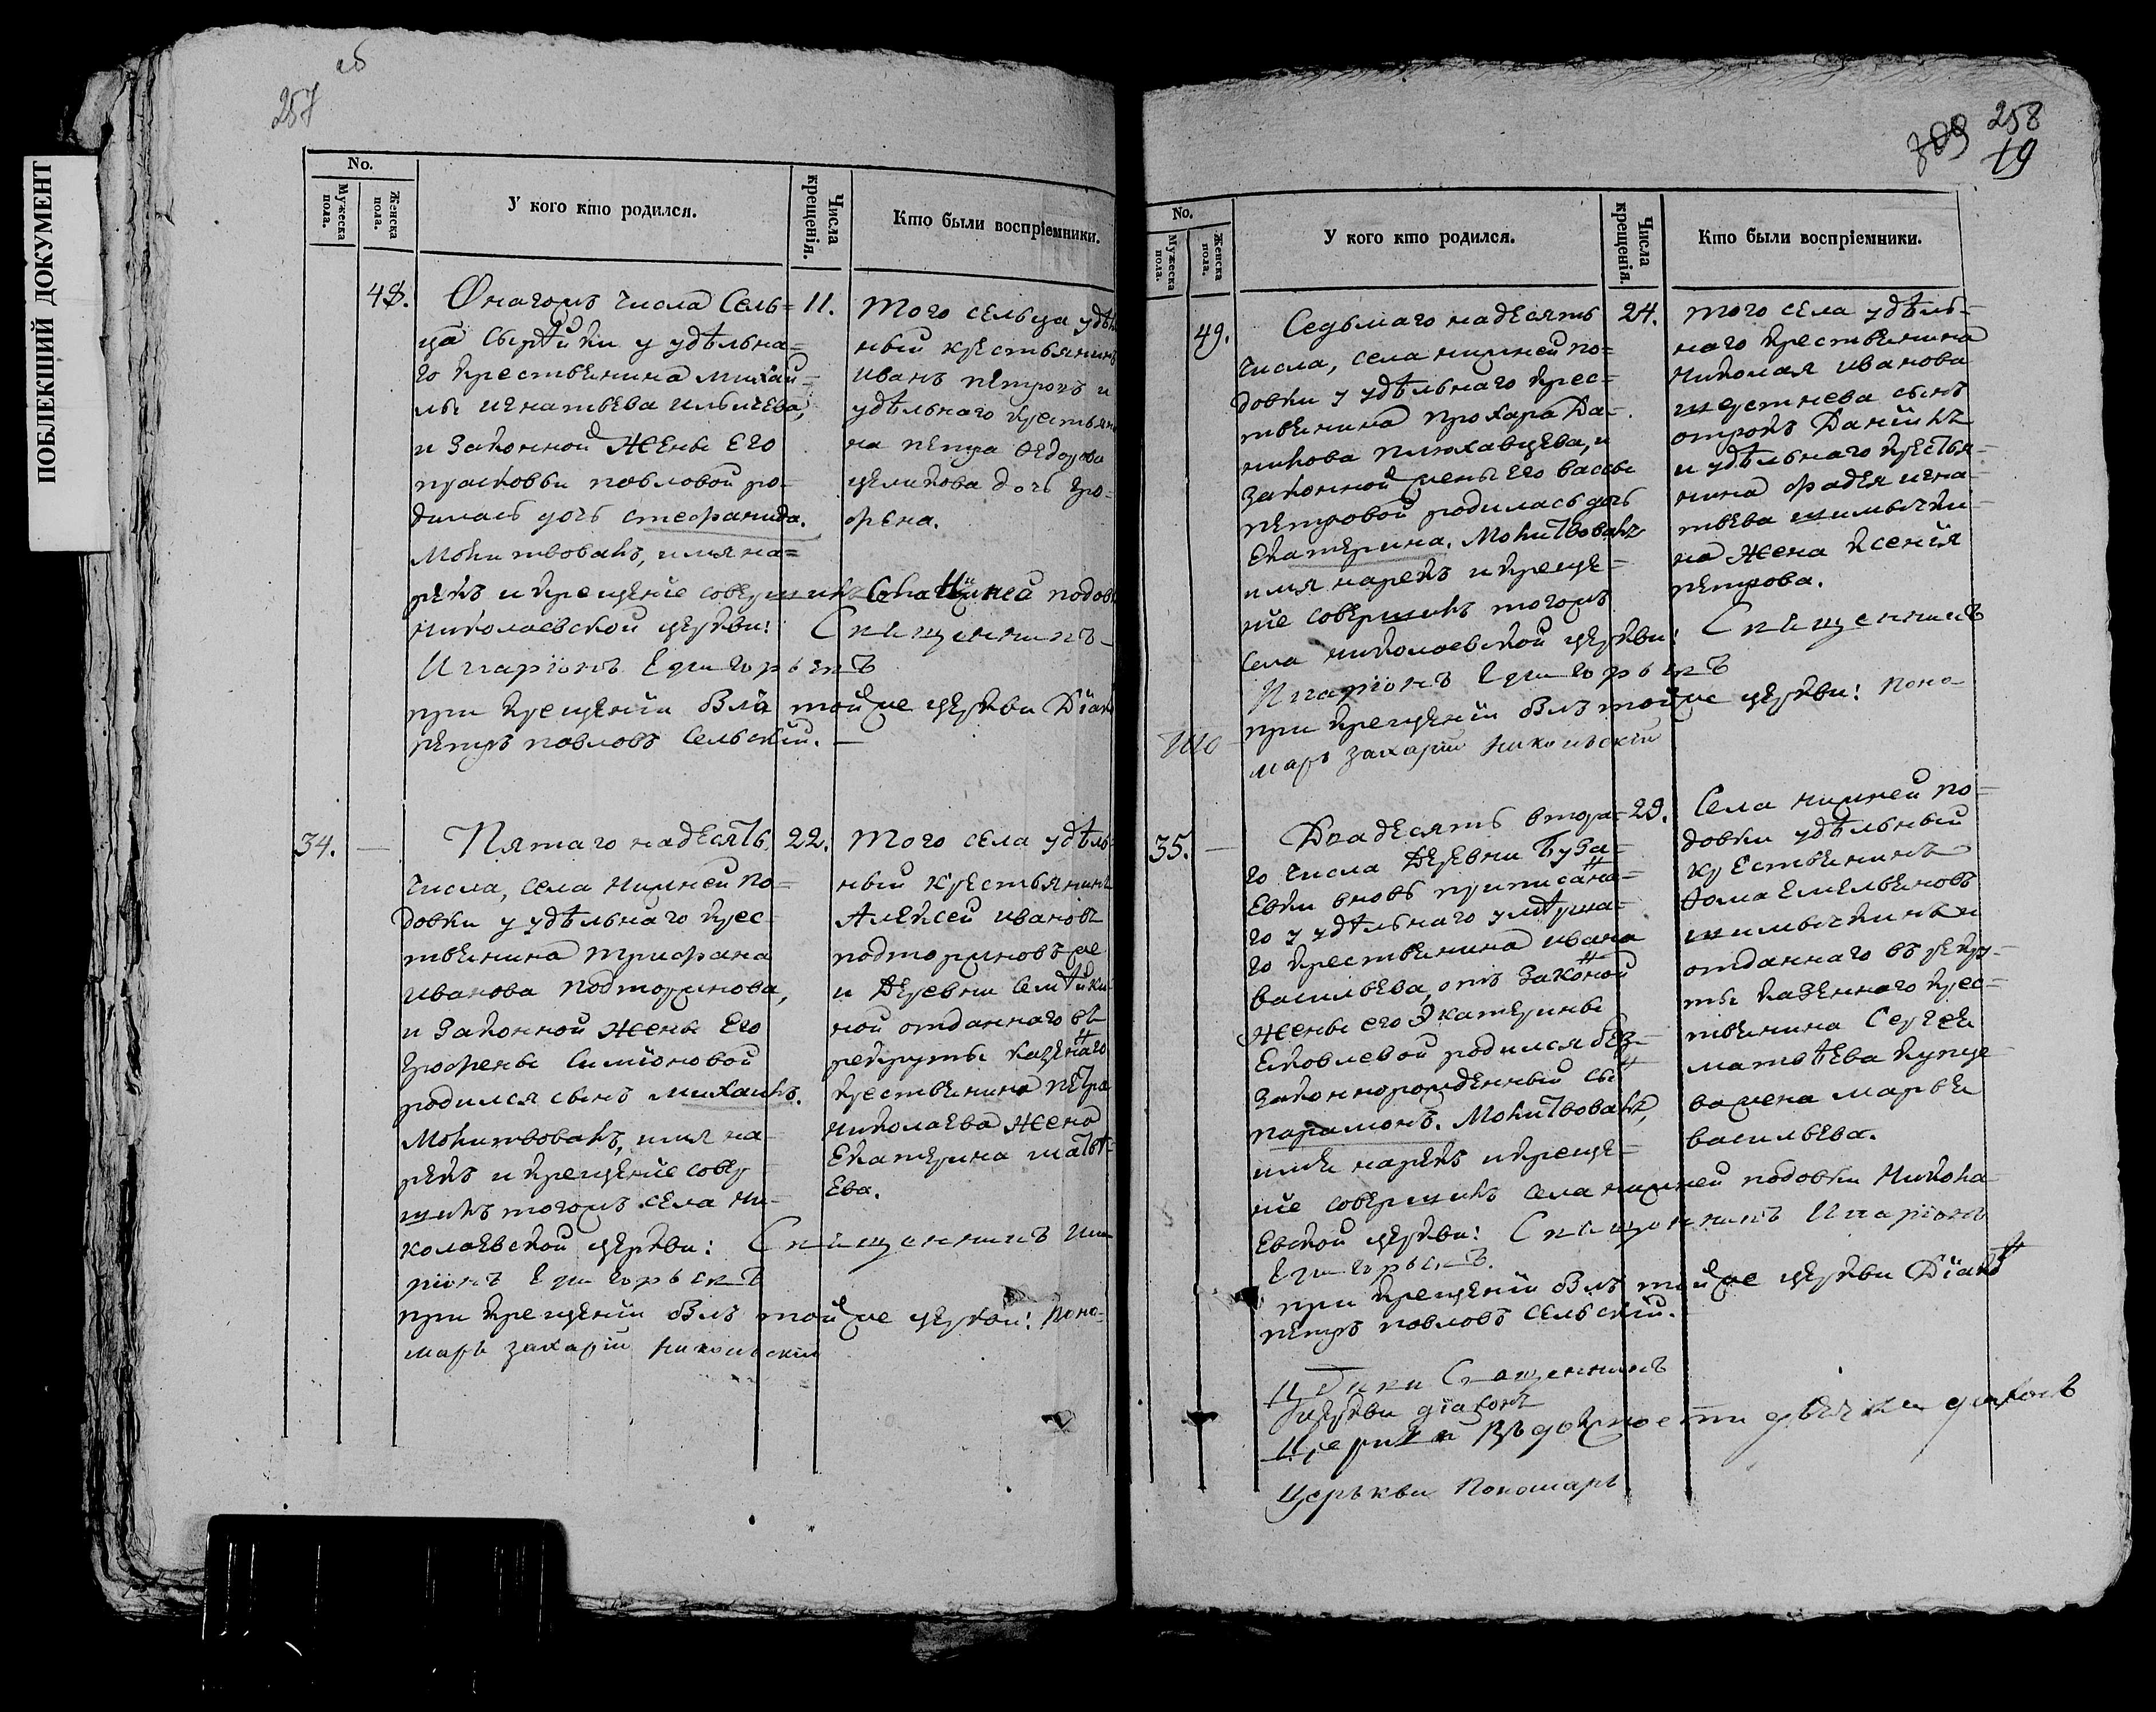 ПОБЛЕКШИЙ ДОКУМЕНТ
об
257
No.
Мужеска пола.
Женска пола.
У кого кто родился.
Числа крещенія.
Кто были воспріемники.
48.
Онагожъ числа Сель=
ца у удѣльна=
го крестьянина Михаи=
лы Игнатьева
и законной жены его
Прасковьи Павловой ро=
дилась дочь Стефанида.
Молитвовалъ, имя на=
рекъ и крещеніе совершилъ села Нижней Подов
Николаевской церкви: Священникъ
Иларіонъ
при крещеніи былъ тойже церкви Діако
Петръ Павловъ Сельскій.
11.
того сельца удѣль
ный крестьянинъ
Иванъ Петровъ и
удѣльнаго крестьяни
на Петра Федорова
дочь Ефро=
сѣна.
34.
Пятаго надесять
числа, села Нижней По=
довки у удѣльнаго крес=
тьянина Трифана
Иванова Подторжнова,
и законной жены его
Симіоновой
родился сынъ Михаилъ.
Молитвовалъ, имя на=
рекъ и крещеніе совер=
шилъ тогожъ села Ни=
колаевской церкви: Священникъ Ила
ріонъ
при крещеніи былъ тойже церкви: Поно=
марь Захарій Никольскій
22.
того села удѣль=
ный крестьянинъ
Алексей Ивановъ
Подторжновъ же
и деревни
ной отданнаго въ
рекруты казеннаго
крестьянина Петра
Николаева жена
Екатерина Матвѣ=
ева.
258
19
No.
Мужеска пола.
Женска пола.
У кого кто родился.
Числа крещенія.
Кто были воспріемники.
49.
Седьмаго надесять
числа, села Нижней По=
довки у удѣльнаго крес=
тьянина Прохара Да=
нилова
законной жены его Вассы
Петровой родилась дочь
Екатерина. Молитвовалъ
имя нарекъ и креще=
ніе совершилъ тогожъ
села Николаевской церкви: Священникъ
Иларіонъ
при крещеніи былъ тойже церкви: Поно=
марь Захарій Никольскій
24.
того села удѣль=
наго крестьянина
Николая Иванова
Шерстнева сынъ
отрокъ Даніилъ
и удѣльнаго крестья=
нина Фадея Игна=
тьева Шимычки=
на жена Ксенія
Петрова.
35.
Двадесять втора=
го числа деревни Буза=
евки вновь приписанна=
го у удѣльнаго умерша=
го крестьянина Ивана
Васильева, отъ законной
жены его Екатерины
Яковлевой родился без=
законнорожденный сынъ
Парамонъ. Молитвовалъ,
имя нарекъ и креще=
ніе совершилъ села Нижней Подовки Никола=
евской церкви: Священникъ Иларіонъ
при крещеніи былъ тойже церкви Діаконъ
Петръ Павловъ Сельскій.
29.
Села Нижней По=
довки удѣльный
крестьянинъ
Фома Емельяновъ
Шимычкинъ и
отданнаго въ рекру=
ты казеннаго крес=
тьянина Сергея
Матвѣева Купце=
ва жена Марья
Васильева.
Священникъ
церкви діаконъ
Церкви Пономарь